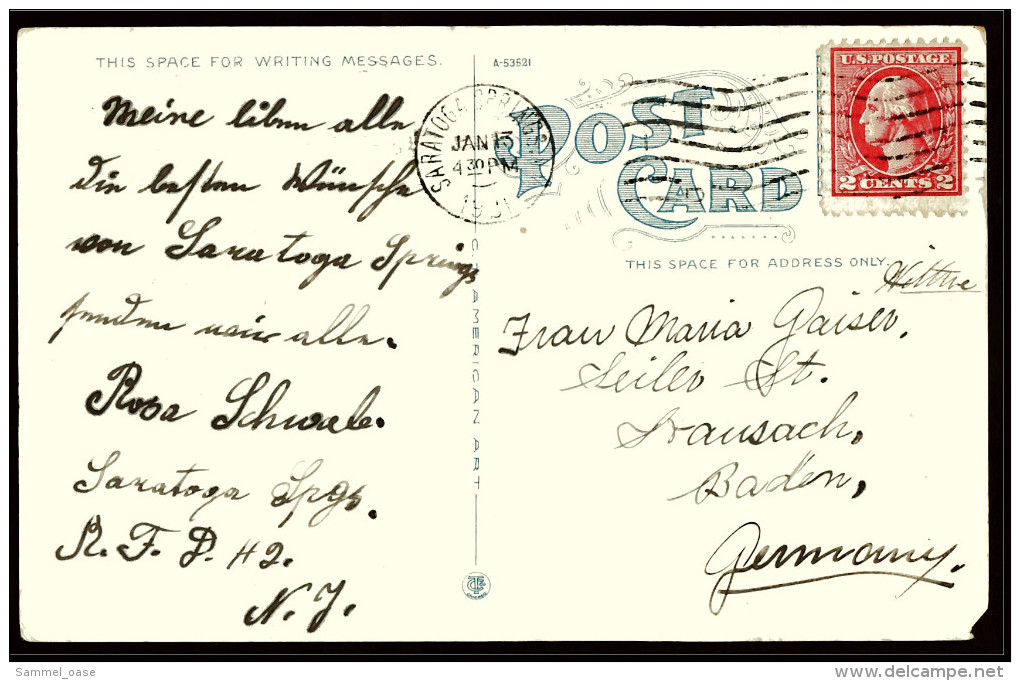 THIS SPACE FOR WRITING MESSAGES.
Meine liben alle
die besten Wünsche
von Saratoga Springs
senden wir alle.
Rosa Schwab.
Saratoga Spgs.
R. F. D. #2.
N. Y.
A-53521
C.T. AMERICAN ART
CHICAGO
POST CARD
SARATOGA SPRINGS
JAN 13
4 30 PM
U.S. POSTAGE
2 CENTS 2
THIS SPACE FOR ADDRESS ONLY.
Wittwe
Frau Maria Gaiser,
Seiler St.
Hausach,
Baden,
Germany.
Sammel_oase
delcampe.net